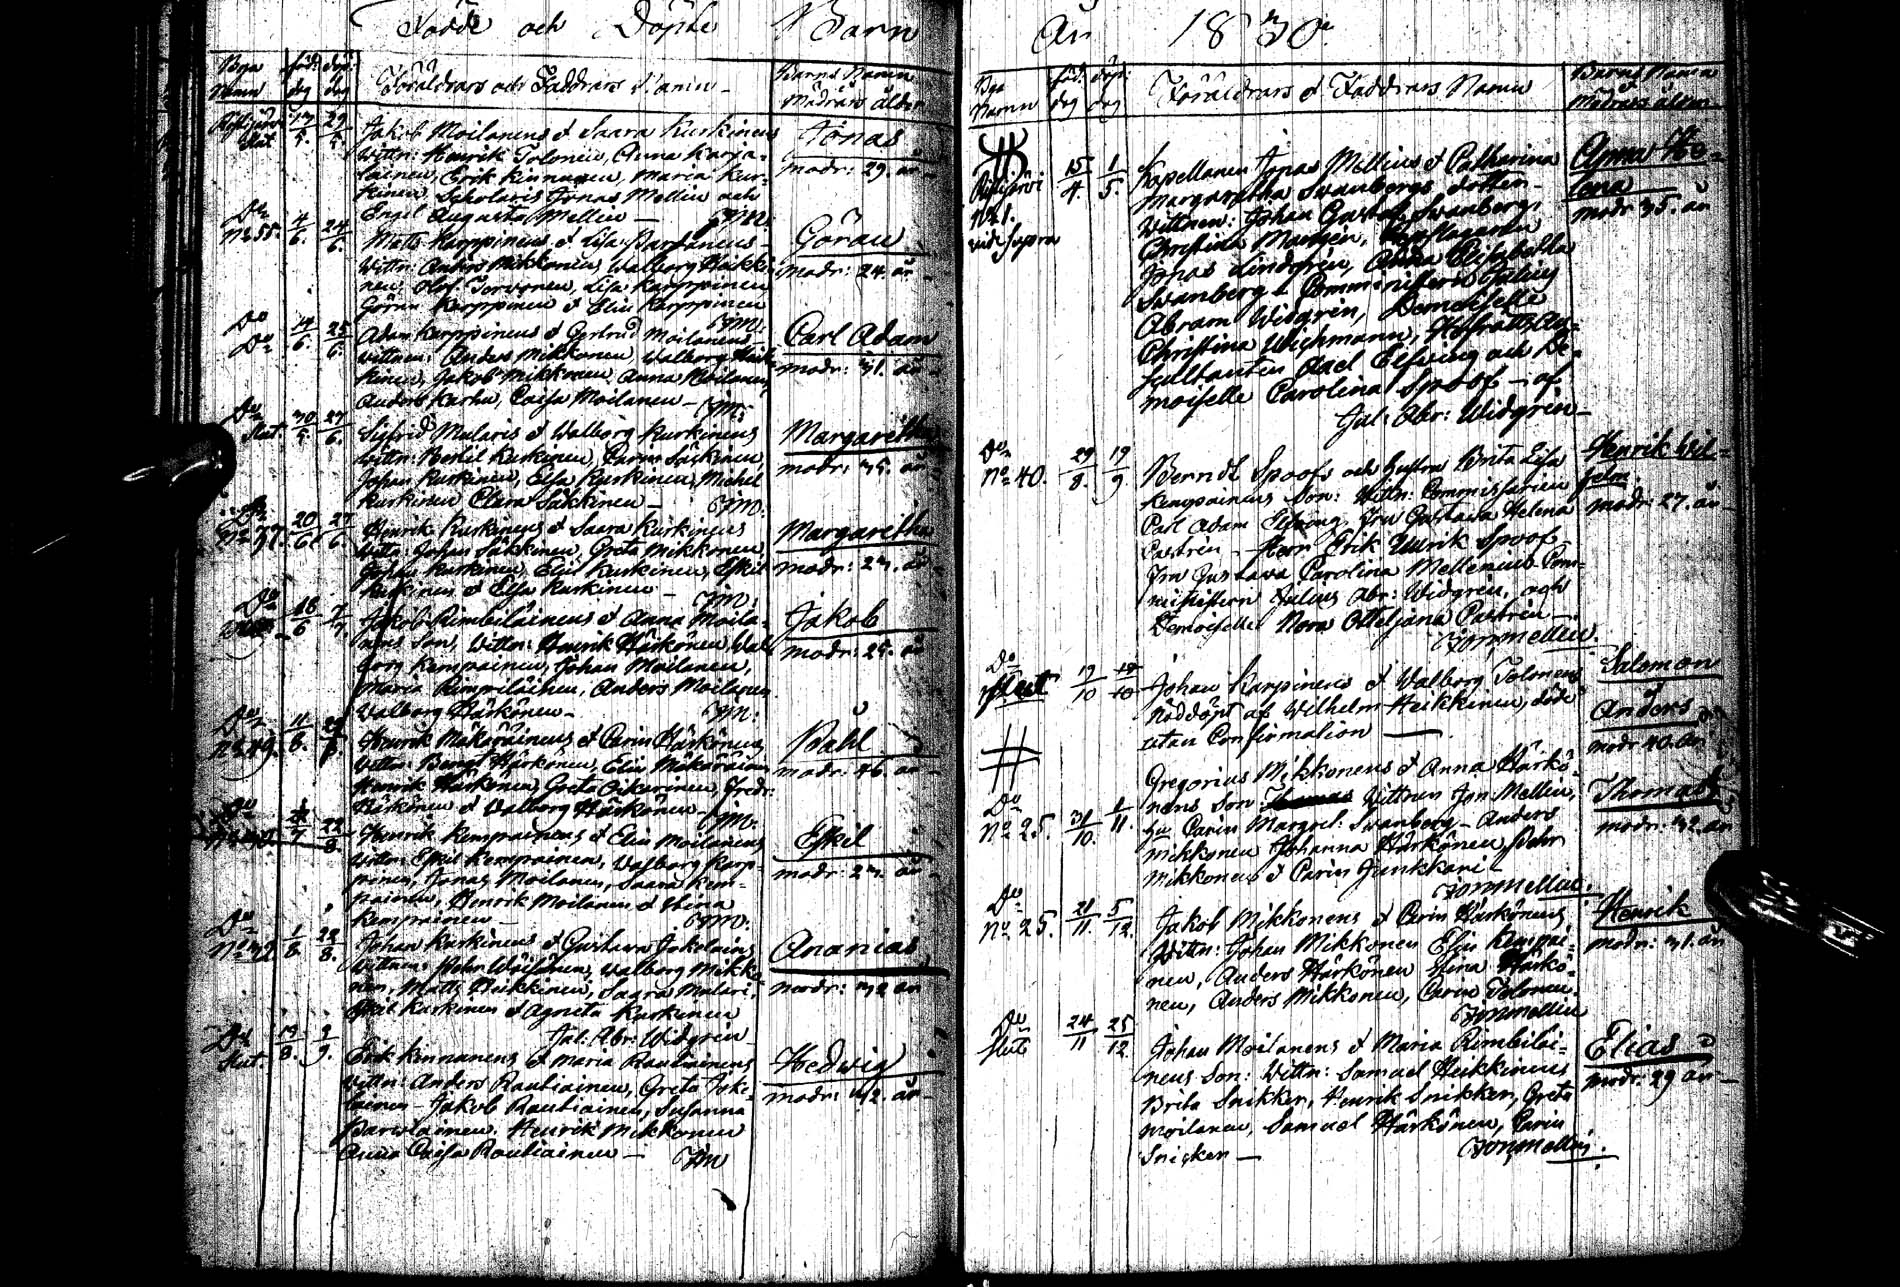 Födde och Döpte Barn
Bya Namn
föd: dag
döp: dag
Föräldrars och Faddrars Namn
Barns Namn
Mödrars ålder
Slut 29
Jakob Moilanens & Saara Kurkinens
Wittn: Henrik Tolonen, Anna Karja-
lainen, Erik Kinnanen, Maria Kur-
kinen, Scholaris Jonas Mellin och
Engel Augusta Mellin — JM:
Jonas
modr: 29. år
Do No 55. 4/6. 24/6.
Matts Karppinens & Lisa
Wittn: Anders Mikkonen, Walborg Heikki-
nen, Olof Torvonen, Lisa Karppinen
Göran Karppinen & Elin Karppinen
JM:
Göran
modr: 24. år
Do Do 14/6. 25/6.
Adam Karppinens & Gertrud Moilanens
Wittnen: Anders Mikkonen, Walborg Heik-
kinen, Jakob Mikkonen, Anna Moilanen,
Anders Karhu, Caisa Moilanen — JM:
Carl Adam
modr: 31. år
Do Slut. 30/5 27/6.
Sigfrid Mularis & Walborg Kurkinens
Wittn: Bertil Kurkinen, Carin Säkkinen,
Johan Kurkinen, Elsa Kurkinen, Michel
Kurkinen Clara Säkkinen — JM:
Margaretha
modr: 35. år
Do No 37. 20/6 27/6.
Henrik Kurkinens & Saara Kurkinens
Wittn: Johan Säkkinen, Greta Mikkonen,
Johan Kurkinen, Elin Kurkinen, Eskil
Kurkinen & Elsa Kurkinen — JM:
Margaretha
modr: 23. år
Do 18/6 7/7.
Jakob Rimbiläinens & Anna Moila-
nens Son, Wittn: Henrik Härkönen, Wal-
borg Kempainen, Johan Moilanen,
Maria Rimpiläinen, Anders Moilanen
Walborg Härkönen — JM:
Jakob
modr: 25. år
Do No 49. 11/8. 22/8.
Henrik Makaräinens & Carin Härkönens
Wittn: Bengt Härkönen, Elin Makaräinen
Henrik Härkönen, Greta Oikarinen, Fredr:
Härkönen & Walborg Härkönen JM:
Påhl
modr: 46. år
Do 22/8.
Henrik Kempainens & Elin Moilanens
Wittn: Eskil Kempainen, Walborg Karp-
pinen, Jonas Moilanen, Saara Kem-
painen, Henrik Moilanen & Stina
Kempainen — JM:
Eskil
modr: 23. år
Do No 32 1/8 22/8.
Johan Kurkinens & Gustava Jokelains
Wittnen: Pehr Väisänen, Walborg Mikko-
nen, Matts Heikkinen, Saara Mulari,
Eskil Kurkinen & Agneta Kurkinen
Jul: Abr: Widgrén
Ananias
modr: 32 år
Do Slut. 19/8. 9/9.
Erik Kinnanens & Maria Rautiainens
Wittn: Anders Rautiainen, Greta Joke-
lainen — Jakob Rautiainen, Susanna
Henrik Mikkonen
Anna Caisa Rautiainen — JM
Hedvig
modr: 42. år
År 1830.
Bya Namn
föd: dag
döp: dag
Föräldrars & Faddrars Namn
Barns Namn
Mödrars ålder
Ristijärvi No 1. vide supra 15/4. 1/5.
Kapellanen Jonas Mellins & Catharina
Margaretha Swanbergs dotter
Wittnen: Johan Gustaf Swanberg,
Christina
Jonas Lindgrén, Anna Elisabetha
Swanberg, Comministern Julius
Abram Widgrén, Demoiselle
Christina Wichmann, Hofrätts Au-
scultanten Axel Elfving och De-
moiselle Carolina Spoof — af
Jul: Abr: Widgrén
Anna He-
lena
modr: 35. år
Do No 40. 29/8. 19/9
Berndt Spoofs och hustru Brita Lisa
Kempainens Son: Wittn: Commissarien
Carl Adam Elfving, Fru Gustava Helena
Castrén — Herr Erik Ulrik Spoof
Fru Gustava Carolina Mellenius Com-
ministern Julius Abr: Widgrén, och
Demoiselle Nora Ottiljana Castrén
Jon Mellin.
Henrik Wil-
helm
modr: 27. år
Do Slut 19/10
Johan Karpinens & Walborg Tolonens
Nöddöpt af Wilhelm Heikkinen, död
utan Confirmation —
Salomon
&
Anders
modr 40. år
Do No 25. 31/10. 1/11.
Gregorius Mikkonens & Anna Härkö-
nens Son Thomas Wittnen Jon: Mellin,
hu Carin Margret: Swanberg — Anders
Mikkonen Johanna Härkönen, Pehr
Mikkonen & Carin Junkkari —
Jon Mellin.
Thomas
modr: 32. år
Do No 25. 21/11. 5/12.
Jakob Mikkonens & Carin Härkönens
Wittn: Johan Mikkonen Elin Kempai-
nen, Anders Härkönen Stina Härkö-
nen, Anders Mikkonen, Carin Tolonen.
Jon Mellin
Henrik
modr: 31. år
Do Slut 24/11 25/12
Johan Moilanens & Maria Rimbiläi-
nens Son: Wittn: Samuel Heikkinens
Brita Snikker, Henrik Snikker, Greta
Moilanen, Samuel Härkönen, Carin
Snicker — Jon Mellin.
Elias
modr: 29 år